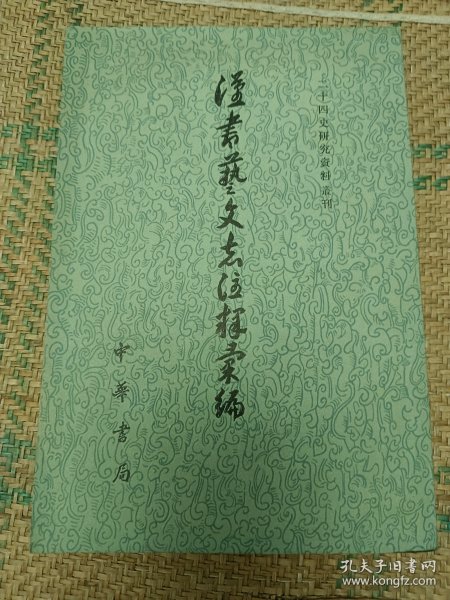 二十四史研究資料叢刊
漢書藝文志注釋彙編
中華書局
孔夫子旧书网
www.kongfz.com